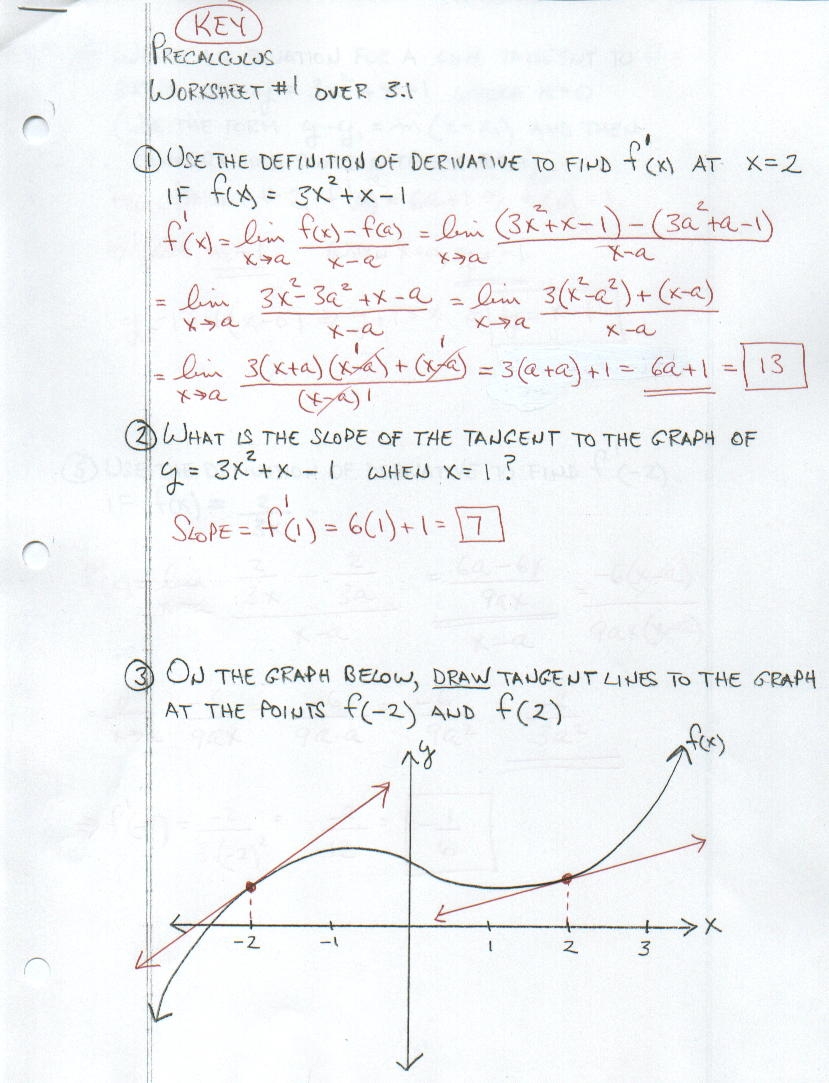 KEY
PRECALCULUS
WORKSHEET #1 OVER 3.1
① USE THE DEFINITION OF DERIVATIVE TO FIND f'(x) AT x=2
IF f(x) = 3x²+x-1
f'(x) = lim x→a (f(x)-f(a))/(x-a) = lim x→a ((3x²+x-1)-(3a²+a-1))/(x-a)
= lim x→a (3x²-3a²+x-a)/(x-a) = lim x→a (3(x²-a²)+(x-a))/(x-a)
= lim x→a (3(x+a)(x-a)¹+(x-a)¹)/((x-a)1) = 3(a+a)+1 = 6a+1 = 13
② WHAT IS THE SLOPE OF THE TANGENT TO THE GRAPH OF
y = 3x²+x-1 WHEN x=1?
SLOPE = f'(1) = 6(1)+1 = 7
③ ON THE GRAPH BELOW, DRAW TANGENT LINES TO THE GRAPH
AT THE POINTS f(-2) AND f(2)
y
f(x)
-2 -1 1 2 3 x